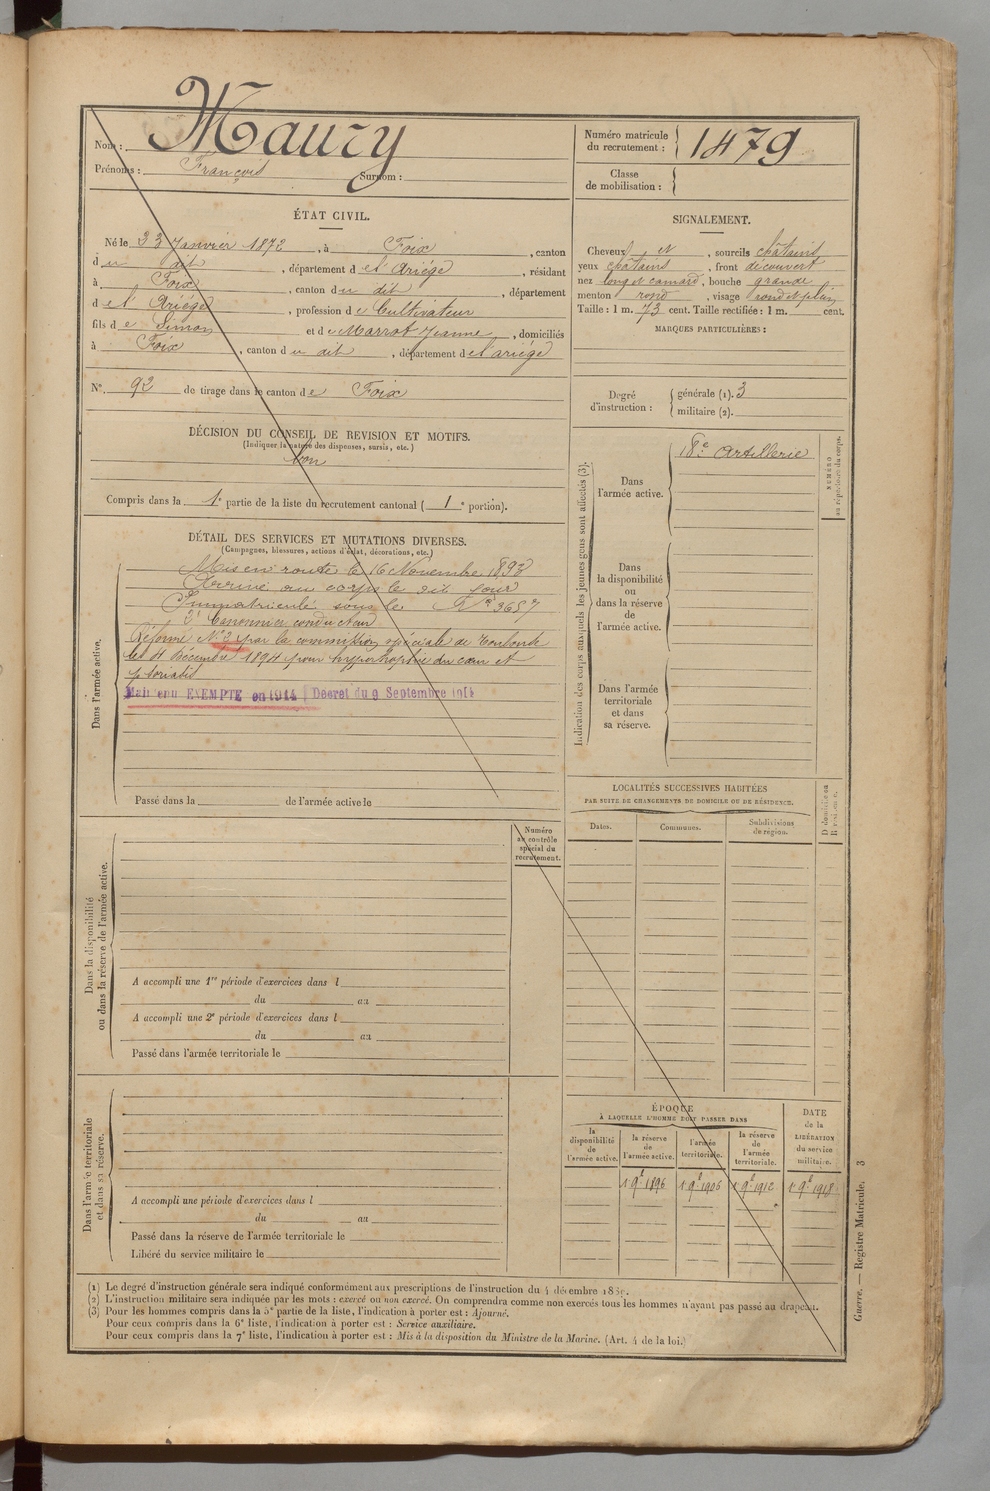 Nom : Maury
Prénoms : François Surnom :
Numéro matricule du recrutement : 1479
Classe de mobilisation :
ÉTAT CIVIL.
Né le 23 Janvier 1872, à Foix, canton
du dit, département de l'Ariége, résidant
à Foix, canton du dit, département
de l'Ariége, profession de Cultivateur
fils de Simon et de Marrot Jeanne, domiciliés
à Foix, canton du dit, département de l'ariége
N° 92 de tirage dans le canton de Foix
SIGNALEMENT.
Cheveux et, sourcils châtains
yeux châtains, front découvert
nez long et camard, bouche grande
menton rond, visage rond et plein
Taille : 1 m. 73 cent. Taille rectifiée : 1 m. cent.
MARQUES PARTICULIÈRES :
Degré d'instruction : générale (1). 3
militaire (2).
DÉCISION DU CONSEIL DE REVISION ET MOTIFS.
(Indiquer la nature des dispenses, sursis, etc.)
bon
Compris dans la 1e partie de la liste du recrutement cantonal (1e portion).
DÉTAIL DES SERVICES ET MUTATIONS DIVERSES.
(Campagnes, blessures, actions d'éclat, décorations, etc.)
Dans l'armée active.
Mis en route le 16 Novembre 1893
Arrivé au corps le dit jour
Immatriculé sous le N° 3657
2e Canonnier conducteur
Réformé N° 2 par la commission spéciale de Toulouse
le 4 Décembre 1894 pour hypertrophie du cœur et
Maintenu EXEMPTÉ en 1914 Décret du 9 Septembre 1914
Passé dans la de l'armée active le
Indication des corps auxquels les jeunes gens sont affectés (3).
Dans l'armée active.
18e Artillerie
NUMÉRO au répertoire du corps.
Dans la disponibilité ou dans la réserve de l'armée active.
Dans l'armée territoriale et dans sa réserve.
LOCALITÉS SUCCESSIVES HABITÉES
PAR SUITE DE CHANGEMENTS DE DOMICILE OU DE RÉSIDENCE.
Dates. Communes. Subdivisions de région.
Numéro au contrôle spécial du recrutement.
Dans la disponibilité ou dans la réserve de l'armée active.
A accompli une 1re période d'exercices dans l
du au
A accompli une 2e période d'exercices dans l
du au
Passé dans l'armée territoriale le
Dans l'armée territoriale et dans sa réserve.
A accompli une période d'exercices dans l
du au
Passé dans la réserve de l'armée territoriale le
Libéré du service militaire le
ÉPOQUE
À LAQUELLE L'HOMME DOIT PASSER DANS
la disponibilité de l'armée active.
la réserve de l'armée active.
l'armée territoriale.
la réserve de l'armée territoriale.
DATE de la LIBÉRATION du service militaire.
1 9e 1896 1 9e 1906 1 9e 1912 1 9e 1918
(1) Le degré d'instruction générale sera indiqué conformément aux prescriptions de l'instruction du 4 décembre
(2) L'instruction militaire sera indiquée par les mots : exercé ou non exercé. On comprendra comme non exercés tous les hommes n'ayant pas passé au drapeau.
(3) Pour les hommes compris dans la 5e partie de la liste, l'indication à porter est : Ajourné.
Pour ceux compris dans la 6e liste, l'indication à porter est : Service auxiliaire.
Pour ceux compris dans la 7e liste, l'indication à porter est : Mis à la disposition du Ministre de la Marine. (Art. 4 de la loi.)
Guerre. — Registre Matricule. 3